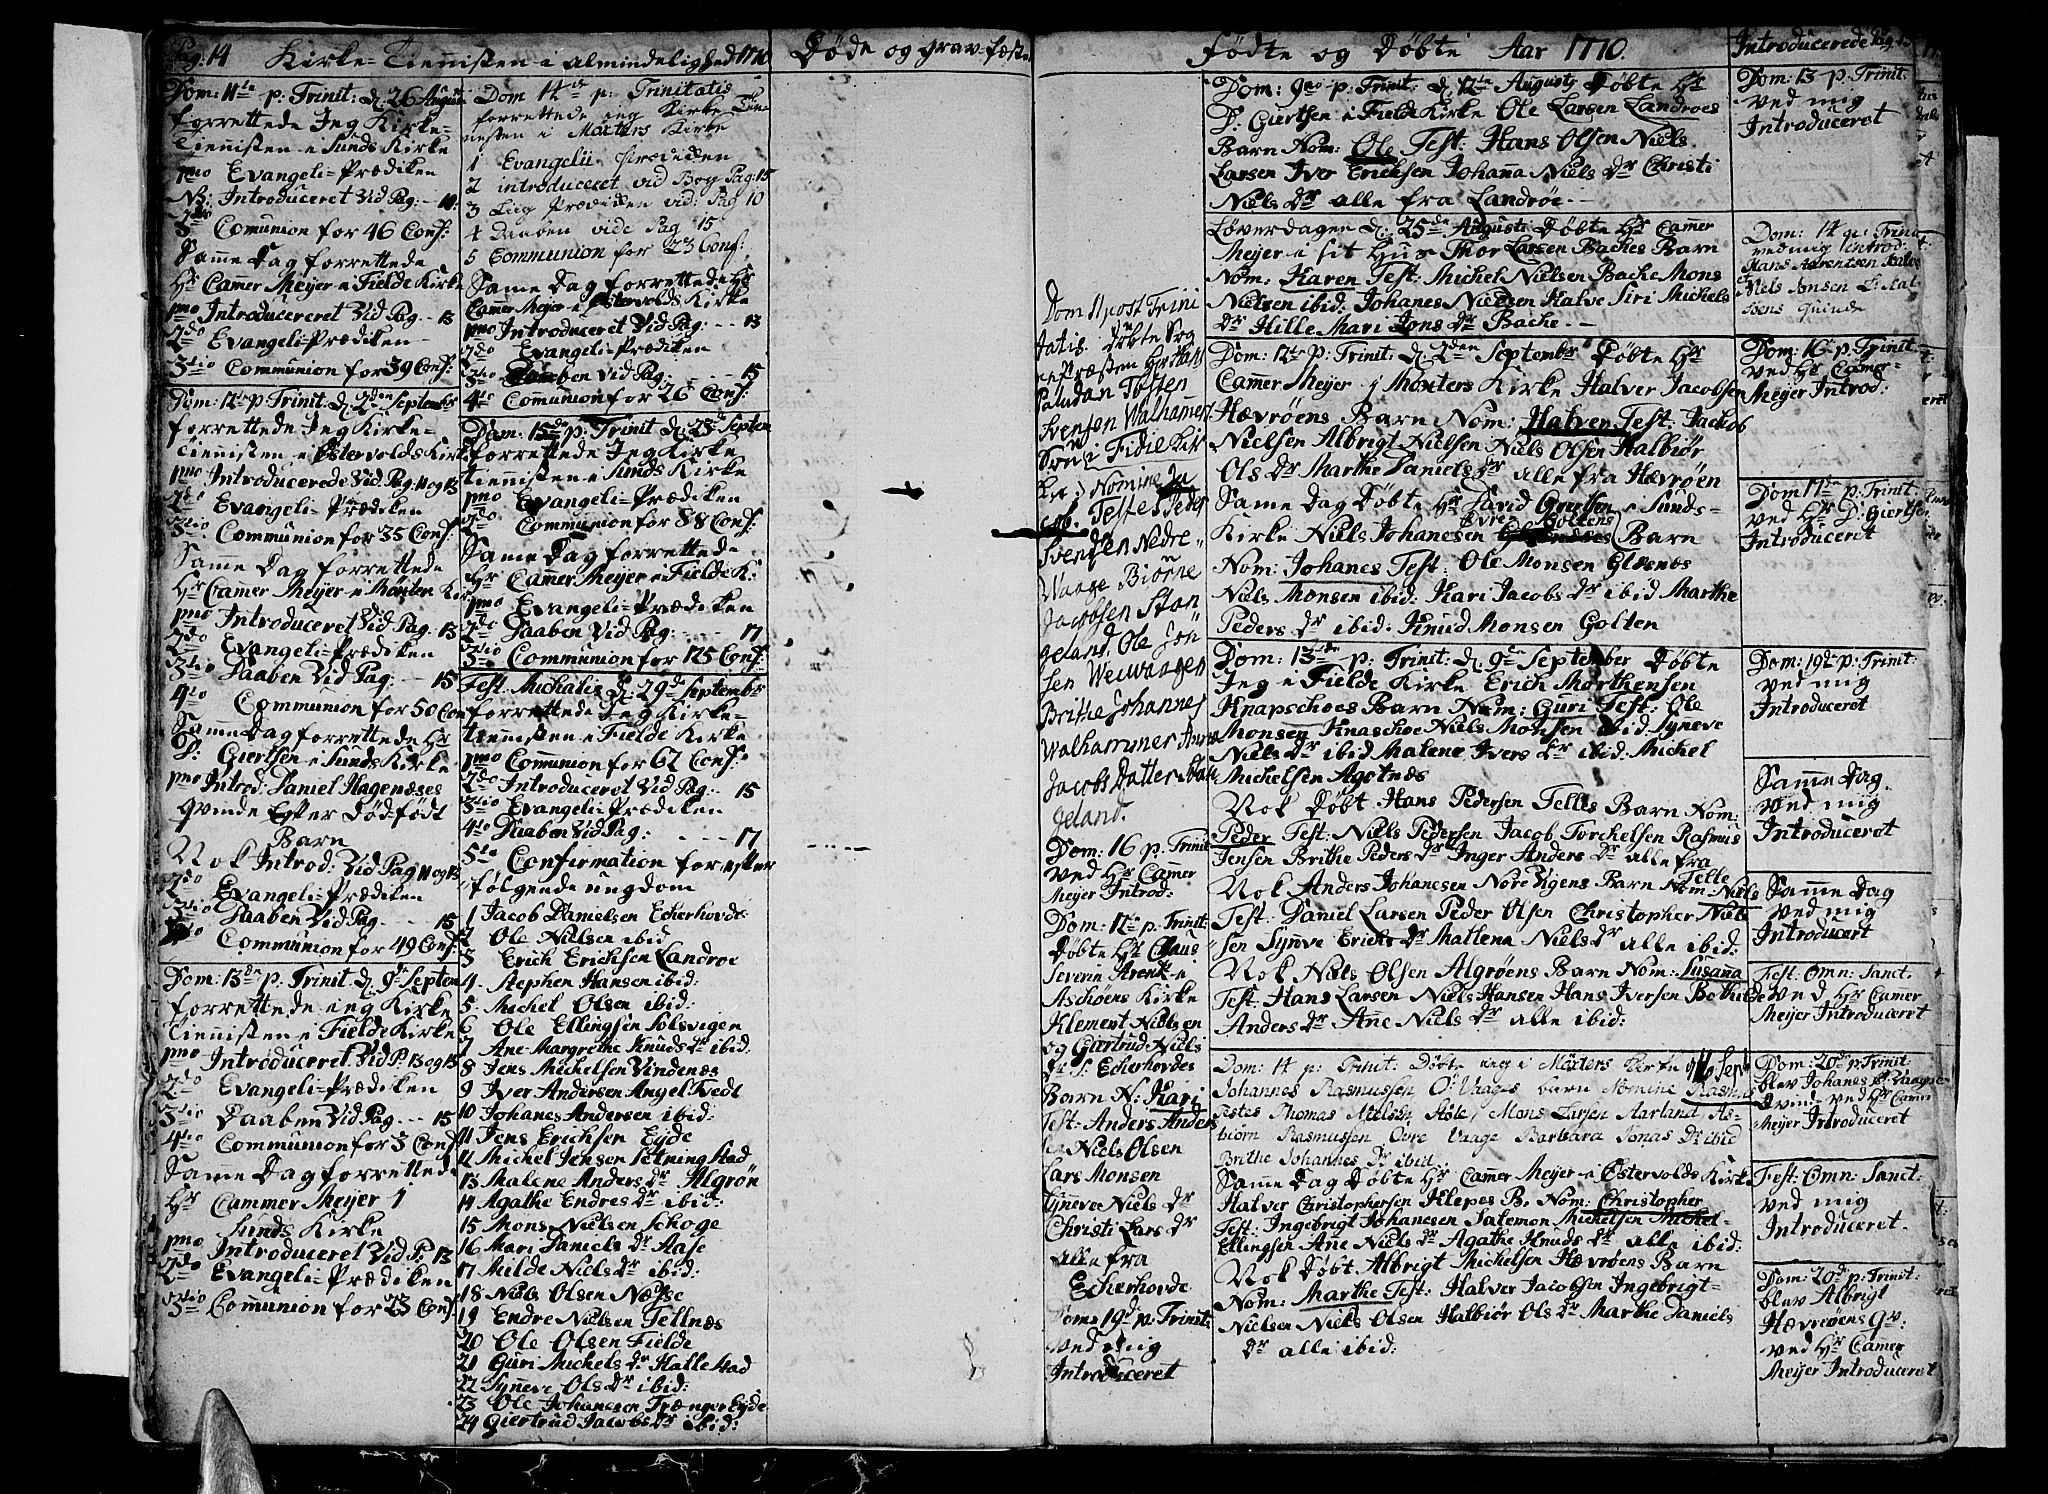 Pag: 14 Kirke-Tiennisten i almindelighed 1770
Dom: 11te p: Trinit: d. 26 Augusti
forrettede Jeg Kirke-
Tiennisten i Sunds Kirke
1mo Evangeli-Prædiken
NB: Introduceret Vid Pag: - 10:
Comunion for 46 Conf:
Same Dag forrettede
Hr Cammer Meijer i Fielde Kirke
pmo Introduceret Vid Pag - 13
2do Evangeli-Prædiken
3tio Communion for 39 Conf:
Dom: 12te p: Trinit: d. 2den Septembr
forrettede Jeg Kirke-
Tiennisten i Østervolds Kirke
1mo Introducerede Vid Pag: 11 og 13
2do Evangeli-Prædiken
3tio Communion for 35 Conf:
Samme Dag forrettede
Hr Cammer Meijer i Møster Kir:
pmo Introduceret Vid Pag: 13
2do Evangeli-Prædiken
3tio Daaben Vid Pag: - - 15
4to Communion for 50 Con
Samme Dag forrettede Hr
D: Giertsen i Sunds Kirke
pmo Introd: Daniel Hagenæses
qvinde Efter Dødfødt
Barn
Nok Introd: Vid Pag 11 og 13
2do Evangeli-Prædiken
3tio Daaben Vid Pag - - 15
Communion for 49 Conf:
Dom: 13de p: Trinit d. 9de Septem
forrettede ieg Kirke
Tiennisten i Fielde Kirke
pmo Introduceret Vid P: 13 og 15
2do Evangeli-Prædiken
3tio Daaben Vid Pag - - 15
4to Communion for 3 Conf
Samme Dag forrettede
Hr Cammer Meijer i
Sunds Kirke
pmo Introduceret Vid P: 13
2do Evangeli-Prædiken
3tio Communion for 23 Conf:
Dom 14de p: Trinitatis
forrettede ieg Kirke Tien-
nesten i Møsters Kirke
1 Evangelii Prædiken
2 introduceret vid Bog Pag: 15
3 Liig Prædiken vid: Pag 10
4 Daaben vide Pag 15
5 Communion for 23 Conf:
Same Dag forrettede Hr
Camer Meijer i Østervolds Kirke
pmo Introduceret Vid Pag: - - 13
2do Evangeli-Prædiken
3tio Daaben Vid Pag: - - 15
4to Comunion for 26 Conf:
Dom: 15de p: Trinit d. 23de Septem
forrettede Jeg Kirke
tiennisten i Sunds Kirke
pmo Evangeli-Prædiken
2do Communion for 88 Conf:
Samme Dag forrettede
Hr Camer Meijer i Fielde K:
pmo Evangeli-Prædeken
2do Daaben Vid Pag: - - - 17
3tio Communion for 125 Conf:
Fest: Michalis d. 29de Septembr
forrettede Jeg Kirke-
tiennisten i Fielde Kirke
pmo Communion for 62 Conf:
2do Introduceret Vid Pag: - 15
3tio Evangeli-Prædeken
4to Daaben Vid Pag: - - - 17
5te Confirmation for efter
følgende ungdom
1 Jacob Danielsen Echerhovde
2 Ole Nielsen ibid
3 Erich Erichsen Landroe
4. Stephen Hansen ibid:
5. Michel Olsen ibid:
6 Ole Ellingsen Solsvigen
7 Ane Margrethe Knuds Dr ibid:
8 Jens Michelsen Vindenæs
9 Iver Andersen Angeltvedt
10 Johanes Andersen ibid:
11 Jens Erichsen Eyde
12 Michel Jensen Setningstad
13 Malene Anders Dr Algrøn
14 Agathe Endres Dr ibid:
15 Mons Nielsen Schoge
16 Mari Daniels Dr Aase
17 Milde Niels Dr ibid:
18 Niels Olsen Næsse
19 Endre Nielsen Tellnæs
20 Ole Olsen Fielde
21 Guri Michels Dr Hallestad
22 Synneve Ols Dr ibid:
23 Ole Johanesen Trænger Eyde
24 Giertrud Jacobs Dr ibid:
Døde og grav-fæste
Fødte og Døbte Aar 1770.
Dom 11 post Trini
tatis døbte Sog
nepræsten Hr
Paludan
Svensen Walhammers
Søn i Fielde Kir
ke: Nomine
Testes Peder
Svensen Nedre-
Vaage Biørne
Jacobsen Stan
geland. Ole Jo
sen Wewangen
Brithe Johannes
Walhammer Anna
Jacobs Datter Stan
geland.
Dom: 16 p. Trinit
Ved Hr Camer
Meijer Introd:
Dom: 12te p: Trinit:
Døbte Hr Claus
Severin Arentz i
Aschøens Kirke
Klement Nielsen
og Giertrud Niels
Dr S: Echerhovdes
Barn N: Kari
Test: Anders Anders
sen Niels Olsen
Lars Monsen
Synneve Niels Dr
Christi Lars Dr
alle fra
Echerhovde
Dom: 19de p: Trinit:
ved Mig
Introduceret
Dom: 9no p: Trinit d. 12te Augusty Døbte Hr
D: Giertsen i Fielde Kirke Ole Larsen Landroes
Barn Nom: Ole Test: Hans Olsen Niels
Larsen Iver Erichsen Johana Niels Dr Christi
Niels Dr alle fra Landrøe. -
Løverdagen d: 25de Augusti Døbte Hr Cammer
Meijer i sit Hus Thor Larsen Baches Barn
Nom: Karen Test: Michel Nielsen Bache Mons
Nielsen ibid: Johanes Nielsen Halve Siri Michels
Dr Hille Mari Jons Dr Bache. -
Dom: 12te P: Trinit: d. 2den Septembr Døbte Hr
Camer Meijer i Møsters Kirke Halver Jacobsen
Hævrøens Barn Nom: Halver Test: Jackob
Nielsen Albrigt Nielsen Niels Olsen Halbiør
Ols Dr Marthe Daniels Dr alle fra Hævrøen
Same Dag Døbte Hr David Giertsen i Sunds-
Øvre Goltens
Kirke Niels Johanesen Barn
Nom: Johanes Test: Ole Monsen Glæsnes
Niels Monsen ibid: Kari Jacobs Dr ibid Marthe
Peders Dr ibid: Knud Monsen Golten
Dom: 13de p: Trinit: d. 9de September Døbte
Jeg i Fielde Kirke Erich Morthensen
Knapschoes Barn Nom: Guri Test: Ole
Monsen Knaschoe Niels Monsen ibid Synneve
Niels Dr ibid Malene Ivers Dr ibid: Michel
Michelsen Agotnæs
Nok Døbt Hans Pedersen Telles Barn Nom:
Peder Test: Niels Pedersen Jacob Torchelsen Rasmus
Jensen Brithe Peders Dr Inger Anders Dr alle fra
Telle
Nok Anders Johanesen Nore Vigens Barn Nom: Niels
Test: Daniel Larsen Peder Olsen Christopher Niel
sen Synve Erichs Dr Mallena Niels Dr alle ibid:
Nok Niels Olsen Algrøens Barn Nom: Susana
Test: Hans Larsen Niels Hansen Hans Iversen Bothilde
Anders Dr Ane Niels Dr alle ibid:
Dom: 14 p: Trinit: Døbte ieg i Møsters Kirke 16 Sept
Johannes Rasmussen O: Vaages barn Nomine Rasmus
Testes Thomas Nielsen Mons Larsen Aarland As-
biørn Rasmussen Øvre Vaage Barbara Jonas Dr ibid
Brithe Johannes Dr ibid.
Samme Dag Døbte Hr Cammer Meijer i Østervolds Kirke
Halver Christophersen Klepes B. Nom: Christopher
Test: Ingebrigt Johanesen Salemon Michelsen Michel
Ellingsen Ane Niels Dr Agathe Knuds Dr alle ibid:
Nok Døbt Albrigt Michelsen Hævrøens Barn
Nom: Marthe Test: Halver Jacobsen Ingebrigt
Nielsen Niels Olsen Halbiør Ols Dr Marthe Daniels
Dr alle ibid:
Introducerede Pag: 15
Dom: 13 p: Trinit:
ved mig
Introduceret
Dom: 14 p: Trinit
ved mig introd:
Hans Arentsen
Niels Jonsen
qvinde
Dom: 16 p. Trinit
ved Hr Camer-
Meijer Introd:
Dom 17de p: Trinit.
ved Hr D: Giertsen
Introduceret
Dom: 19de p: Trinit:
ved mig
Introduceret
Samme Dag
ved mig
Introduceret
Samme Dag
ved mig
Introducert
Fest: Omn: Sanct:
ved Hr Camer
Meijer Introduceret
Dom: 20de p: Trinit:
blev Johanes Ø: Vaages
Qvinde ved Hr Camer
Meijer Introduceret
Fest: Omn: Sanct:
ved mig
Introduceret.
Dom: 20de p: Trinit:
blev Albrigt
Hævrøens qv:
ved Hr Camer
Meijer Introduceret